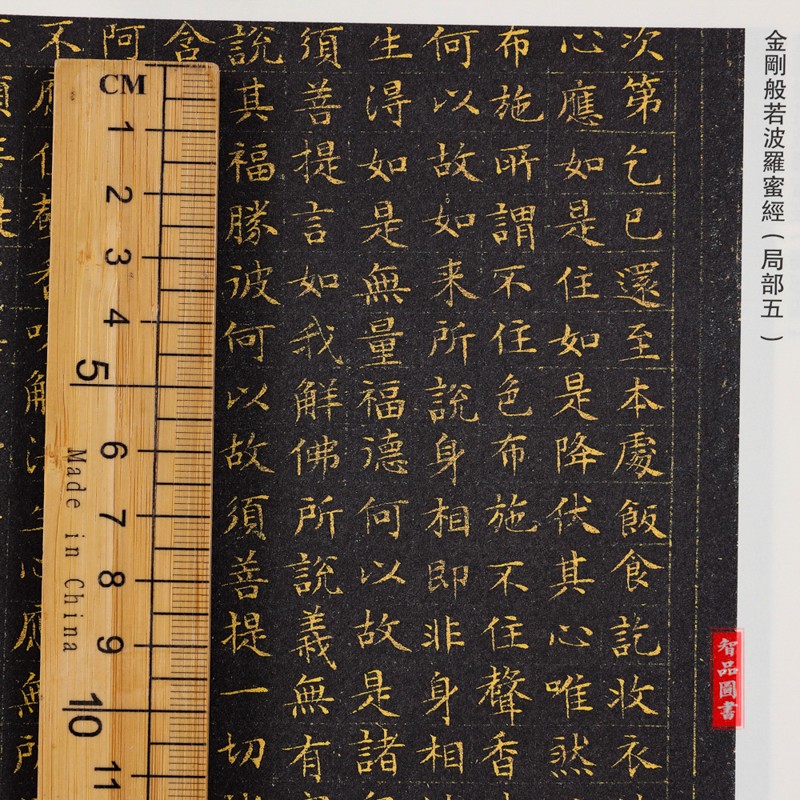 金剛般若波羅蜜經(局部五)
次第乞已還至本處飯食訖收衣
心應如是住如是降伏其心唯然
布施所謂不住色布施不住聲香
何以故如来所說身相即非身相
生得如是無量福德何以故是諸
須善提言如我解佛所說義無有
說其福勝彼何以故須善提一切
含
阿
不應住
智品圖書
CM
1
2
3
4
5
6
7
8
9
10
11
Made in China